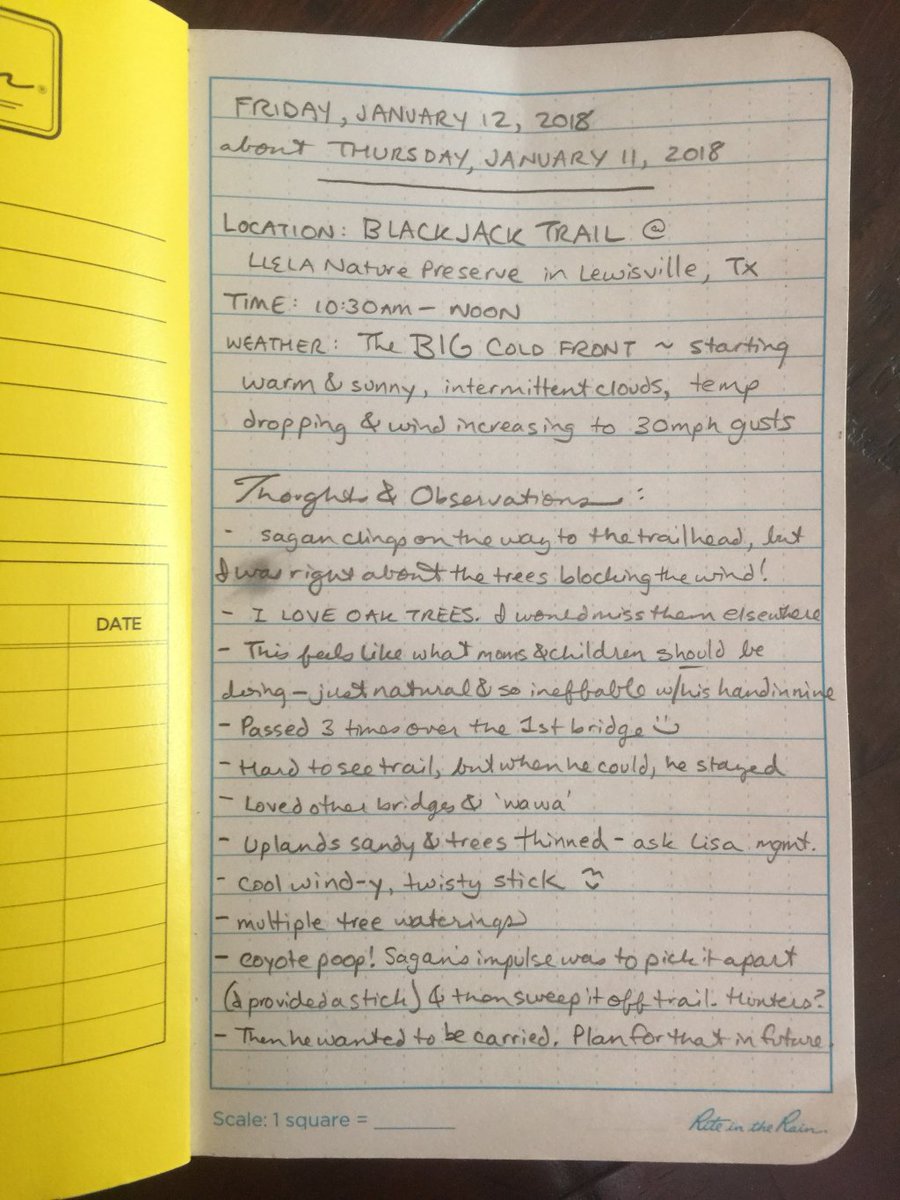 FRIDAY, JANUARY 12, 2018
about THURSDAY, JANUARY 11, 2018
LOCATION: BLACKJACK TRAIL @
LLELA Nature Preserve in Lewisville, TX
TIME: 10:30AM - NOON
WEATHER: The BIG COLD FRONT ~ starting
warm & sunny, intermittent clouds, temp
dropping & wind increasing to 30mph gusts
Thoughts & Observations:
- sagan clings on the way to the trailhead, but
I was right about the trees blocking the wind!
- I LOVE OAK TREES. I would miss them elsewhere
- This feels like what moms & children should be
doing - just natural & so ineffable w/his hand in mine
- Passed 3 times over the 1st bridge :)
- Hard to see trail, but when he could, he stayed
- Loved other bridges & 'wawa'
- Uplands sandy & trees thinned - ask Lisa mgmt.
- cool wind-y, twisty stick :)
- multiple tree waterings
- coyote poop! Sagan's impulse was to pick it apart
(I provided a stick) & then sweep it off trail. Hunters?
- Then he wanted to be carried. Plan for that in future.
DATE
Scale: 1 square = ______
Rite in the Rain